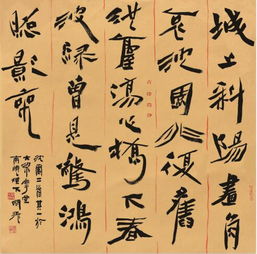 城上斜陽畫角
哀沈園非復舊
池臺傷心橋下春
波綠曾是驚鴻
照影來
沈園二首其一於